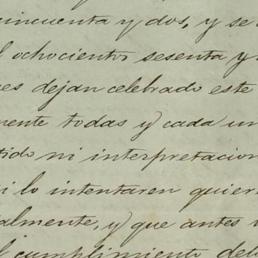 cincuenta y dos, y se
ochocientos sesenta y
dejan celebrado este
mente todas y cada un
tido ni interpretacion
i lo intentaren quier
almente, y que antes
l cumplimiento del